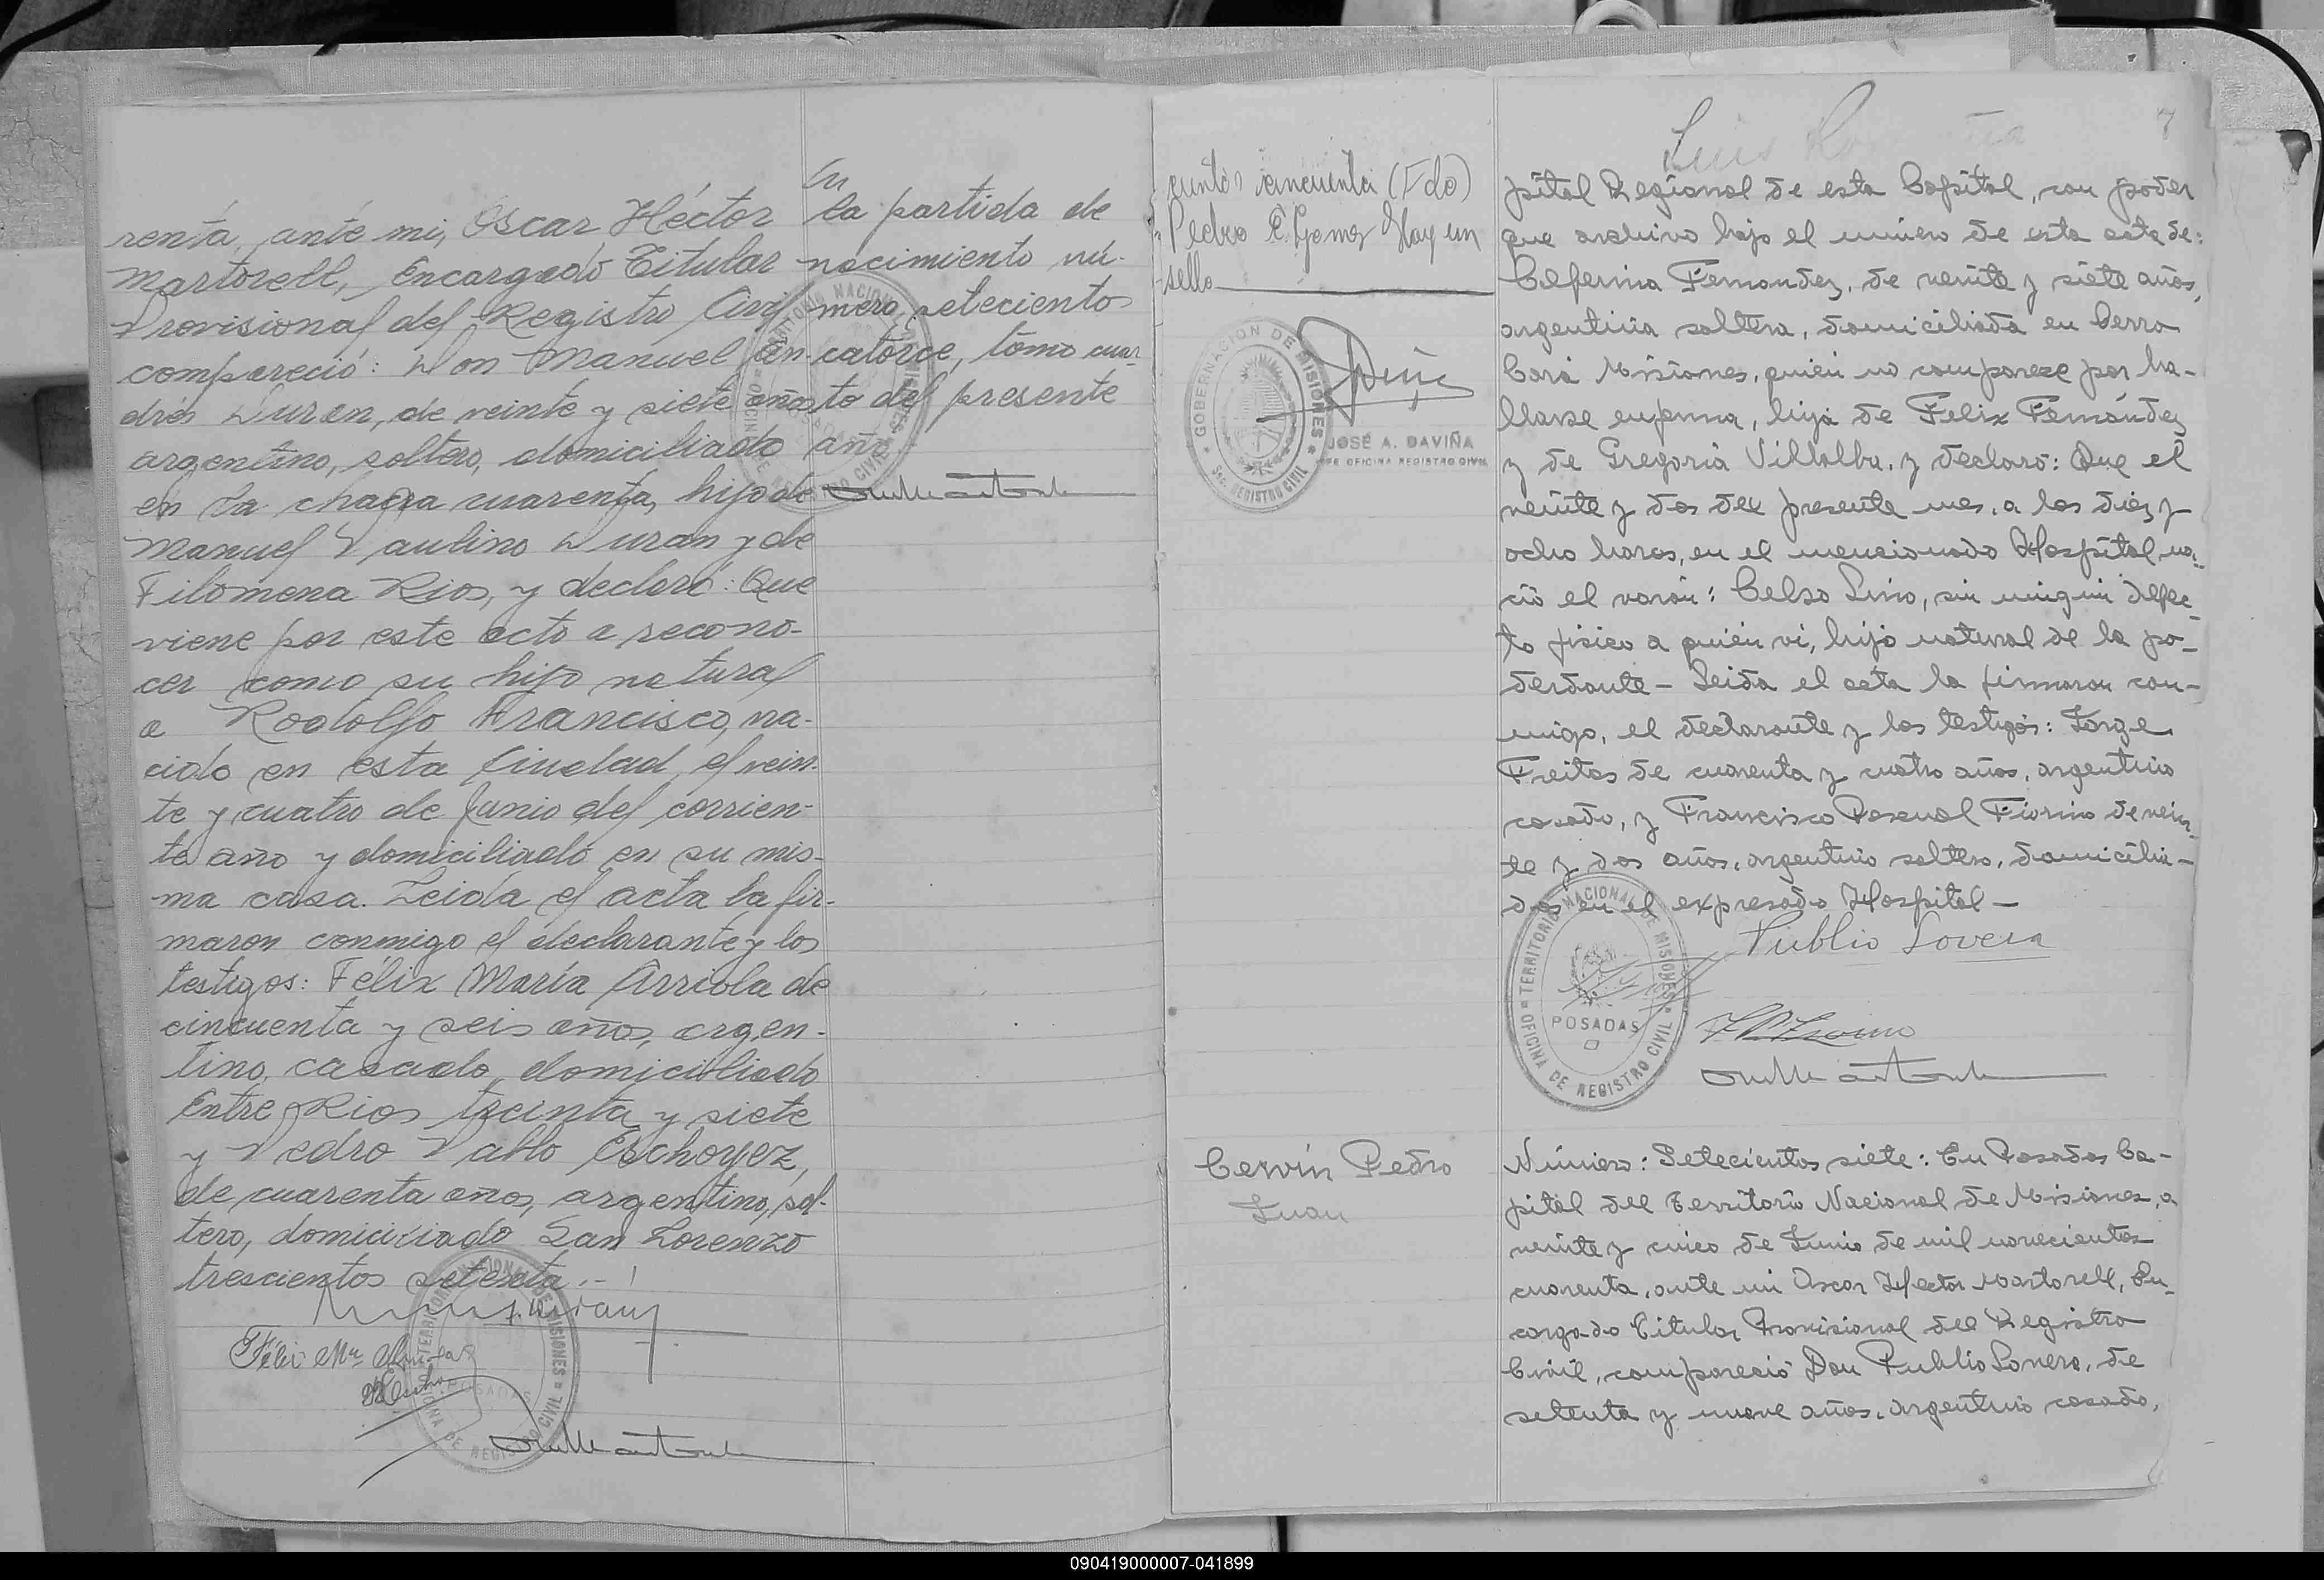 renta, ante mi, Oscar Héctor
Martorell, Encargado Titular
Provisional del Registro Civil
compareció: Don Manuel An-
drés Duran, de veinte y siete años
argentino, soltero, domiciliado
en la chacra cuarenta, hijo de
Manuel Paulino Duran y de
Filomena Rios, y declaró: Que
viene por este acto a recono-
cer como su hijo natural
a Rodolfo Francisco, na-
cido en esta Ciudad, el vein-
te y cuatro de Junio del corrien-
te año y domiciliado en su mis-
ma casa. Leida el acta la fir-
maron conmigo el declarante y los
testigos: Félix María Arriola de
cincuenta y seis años, argen-
tino, casado, domiciliado
Entre Rios treinta y siete
y Pedro Pablo Eschoyez,
de cuarenta años, argentino, sol-
tero, domiciliado San Lorenzo
trescientos setenta.-
Félix Ma
OFICINA DE REGISTRO CIVIL
TERRITORIO NACIONAL DE MISIONES
POSADAS
En
la partida de
nacimiento nú-
mero setecientos
catorce, tomo cuar-
to del presente
año.
TERRITORIO NACIONAL DE MISIONES
OFICINA DE REGISTRO CIVIL
POSADAS
cuenta (Fdo)
Pedro E. Gomez Hay un
sello
GOBERNACION DE MISIONES
Sec. REGISTRO CIVIL
JOSÉ A. DAVIÑA
FE OFICINA REGISTRO CIVIL
Luis
7
pital Regional de esta Capital, con poder
que archivo bajo el número de esta acta de:
Ceferina Fernandez, de veinte y siete años,
argentina soltera, domiciliada en Cerro
Corá Misiones, quién no comparece por ha-
llarse enferma, hija de Felix Fernández
y de Gregoria Villalba, y declaró: Que el
veinte y dos del presente mes, a las diez y
ocho horas, en el mencionado Hospital, na-
ció el varón: Celso Lino, sin ningún defec-
to físico a quién vi, hijo natural de la po-
derdante - Leida el acta la firmaron con-
migo, el declarante y los testigos: Jorge
Freitas de cuarenta y cuatro años, argentino
casado, y Francisco Pascual Fiorino de vein-
te y dos años, argentino soltero, domicilia-
dos en el expresado Hospital -
Publio Lovera
TERRITORIO NACIONAL DE MISIONES
OFICINA DE REGISTRO CIVIL
POSADAS
Cerwin Pedro
Juan
Número: Setecientos siete: En Posadas Ca-
pital del Territorio Nacional de Misiones, a
veinte y cinco de Junio de mil novecientos
cuarenta, ante mi Oscar Hector Martorell, En-
cargado Titular Provisional del Registro
Civil, compareció Don Publio Lovera, de
setenta y nueve años, argentino casado,
090419000007-041899